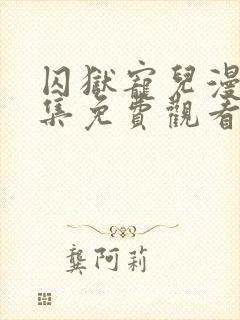 囚獄寵兒漫
集免費觀看
龔阿莉